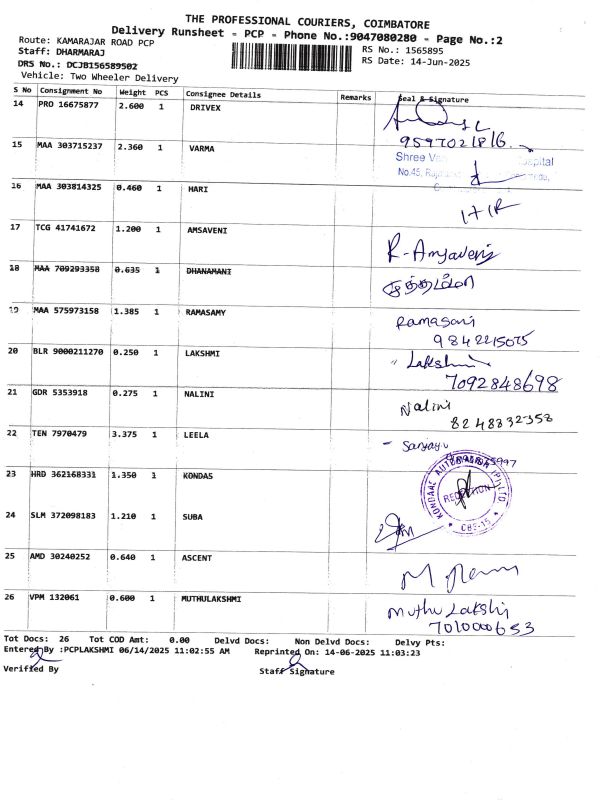 THE PROFESSIONAL COURIERS, COIMBATORE
Delivery Runsheet - PCP - Phone No.:9047080280 - Page No.:2
Route: KAMARAJAR ROAD PCP
RS No.: 1565895
Staff: DHARMARAJ
RS Date: 14-Jun-2025
DRS No.: DCJB156589502
Vehicle: Two Wheeler Delivery
S No Consignment No Weight PCS Consignee Details Remarks Seal & Signature
14 PRO 16675877 2.600 1 DRIVEX
9597021816
15 MAA 303715237 2.360 1 VARMA
Shree
No.45,
16 MAA 303814325 0.460 1 HARI
17 TCG 41741672 1.200 1 AMSAVENI
R-Amsaveni
18 MAA 709293358 0.635 1 DHANAMANI
19 MAA 575973158 1.385 1 RAMASAMY
Ramasami
9842215075
20 BLR 9000211270 0.250 1 LAKSHMI
Lakshmi
7092848698
21 GDR 5353918 0.275 1 NALINI
Nalini
8248832358
22 TEN 7970479 3.375 1 LEELA
23 HRD 362168331 1.350 1 KONDAS
KONDAAS AUTOMATION (P) LTD
RECEPTION
CBE-15
24 SLM 372098183 1.210 1 SUBA
25 AMD 30240252 0.640 1 ASCENT
26 VPM 132061 0.600 1 MUTHULAKSHMI
Muthu Lakshi
7010000653
Tot Docs: 26 Tot COD Amt: 0.00 Delvd Docs: Non Delvd Docs: Delvy Pts:
Entered By :PCPLAKSHMI 06/14/2025 11:02:55 AM Reprinted On: 14-06-2025 11:03:23
Verified By Staff Signature